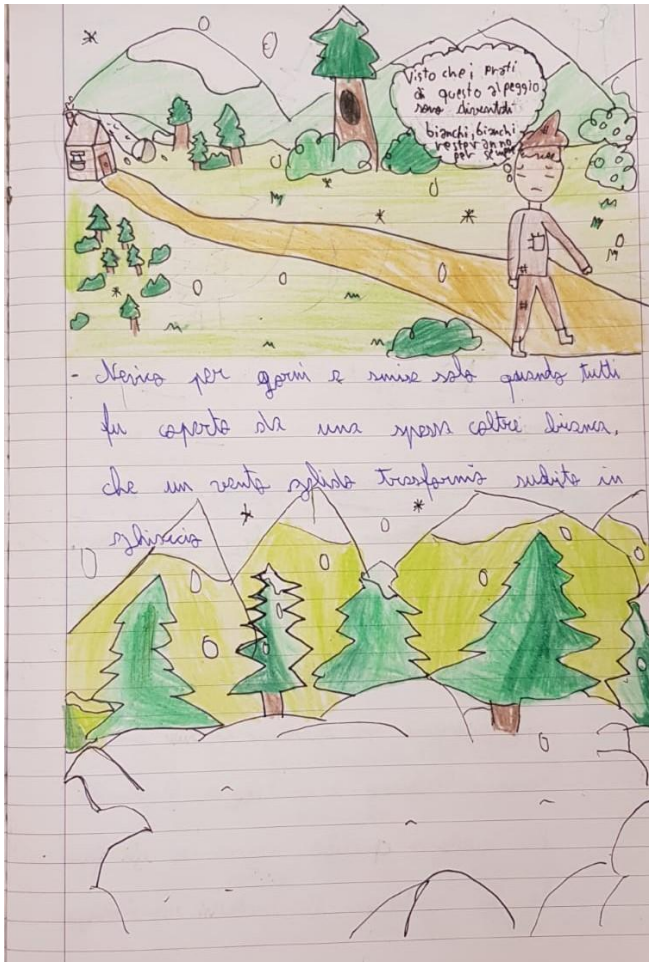 Visto che i prati
di questo alpeggio
sono diventati
bianchi, bianchi
resteranno
per sempre
- Nevico per gorni e smise solo quando tutti
fu coperto da una spessa coltre bianca,
che un vento gelido trasformò subito in
ghiaccio